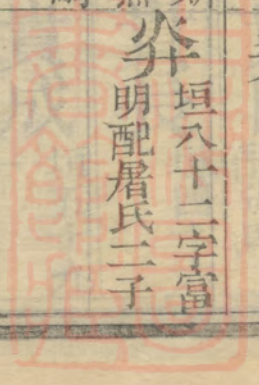 垣八十二字富
明配屠氏二子